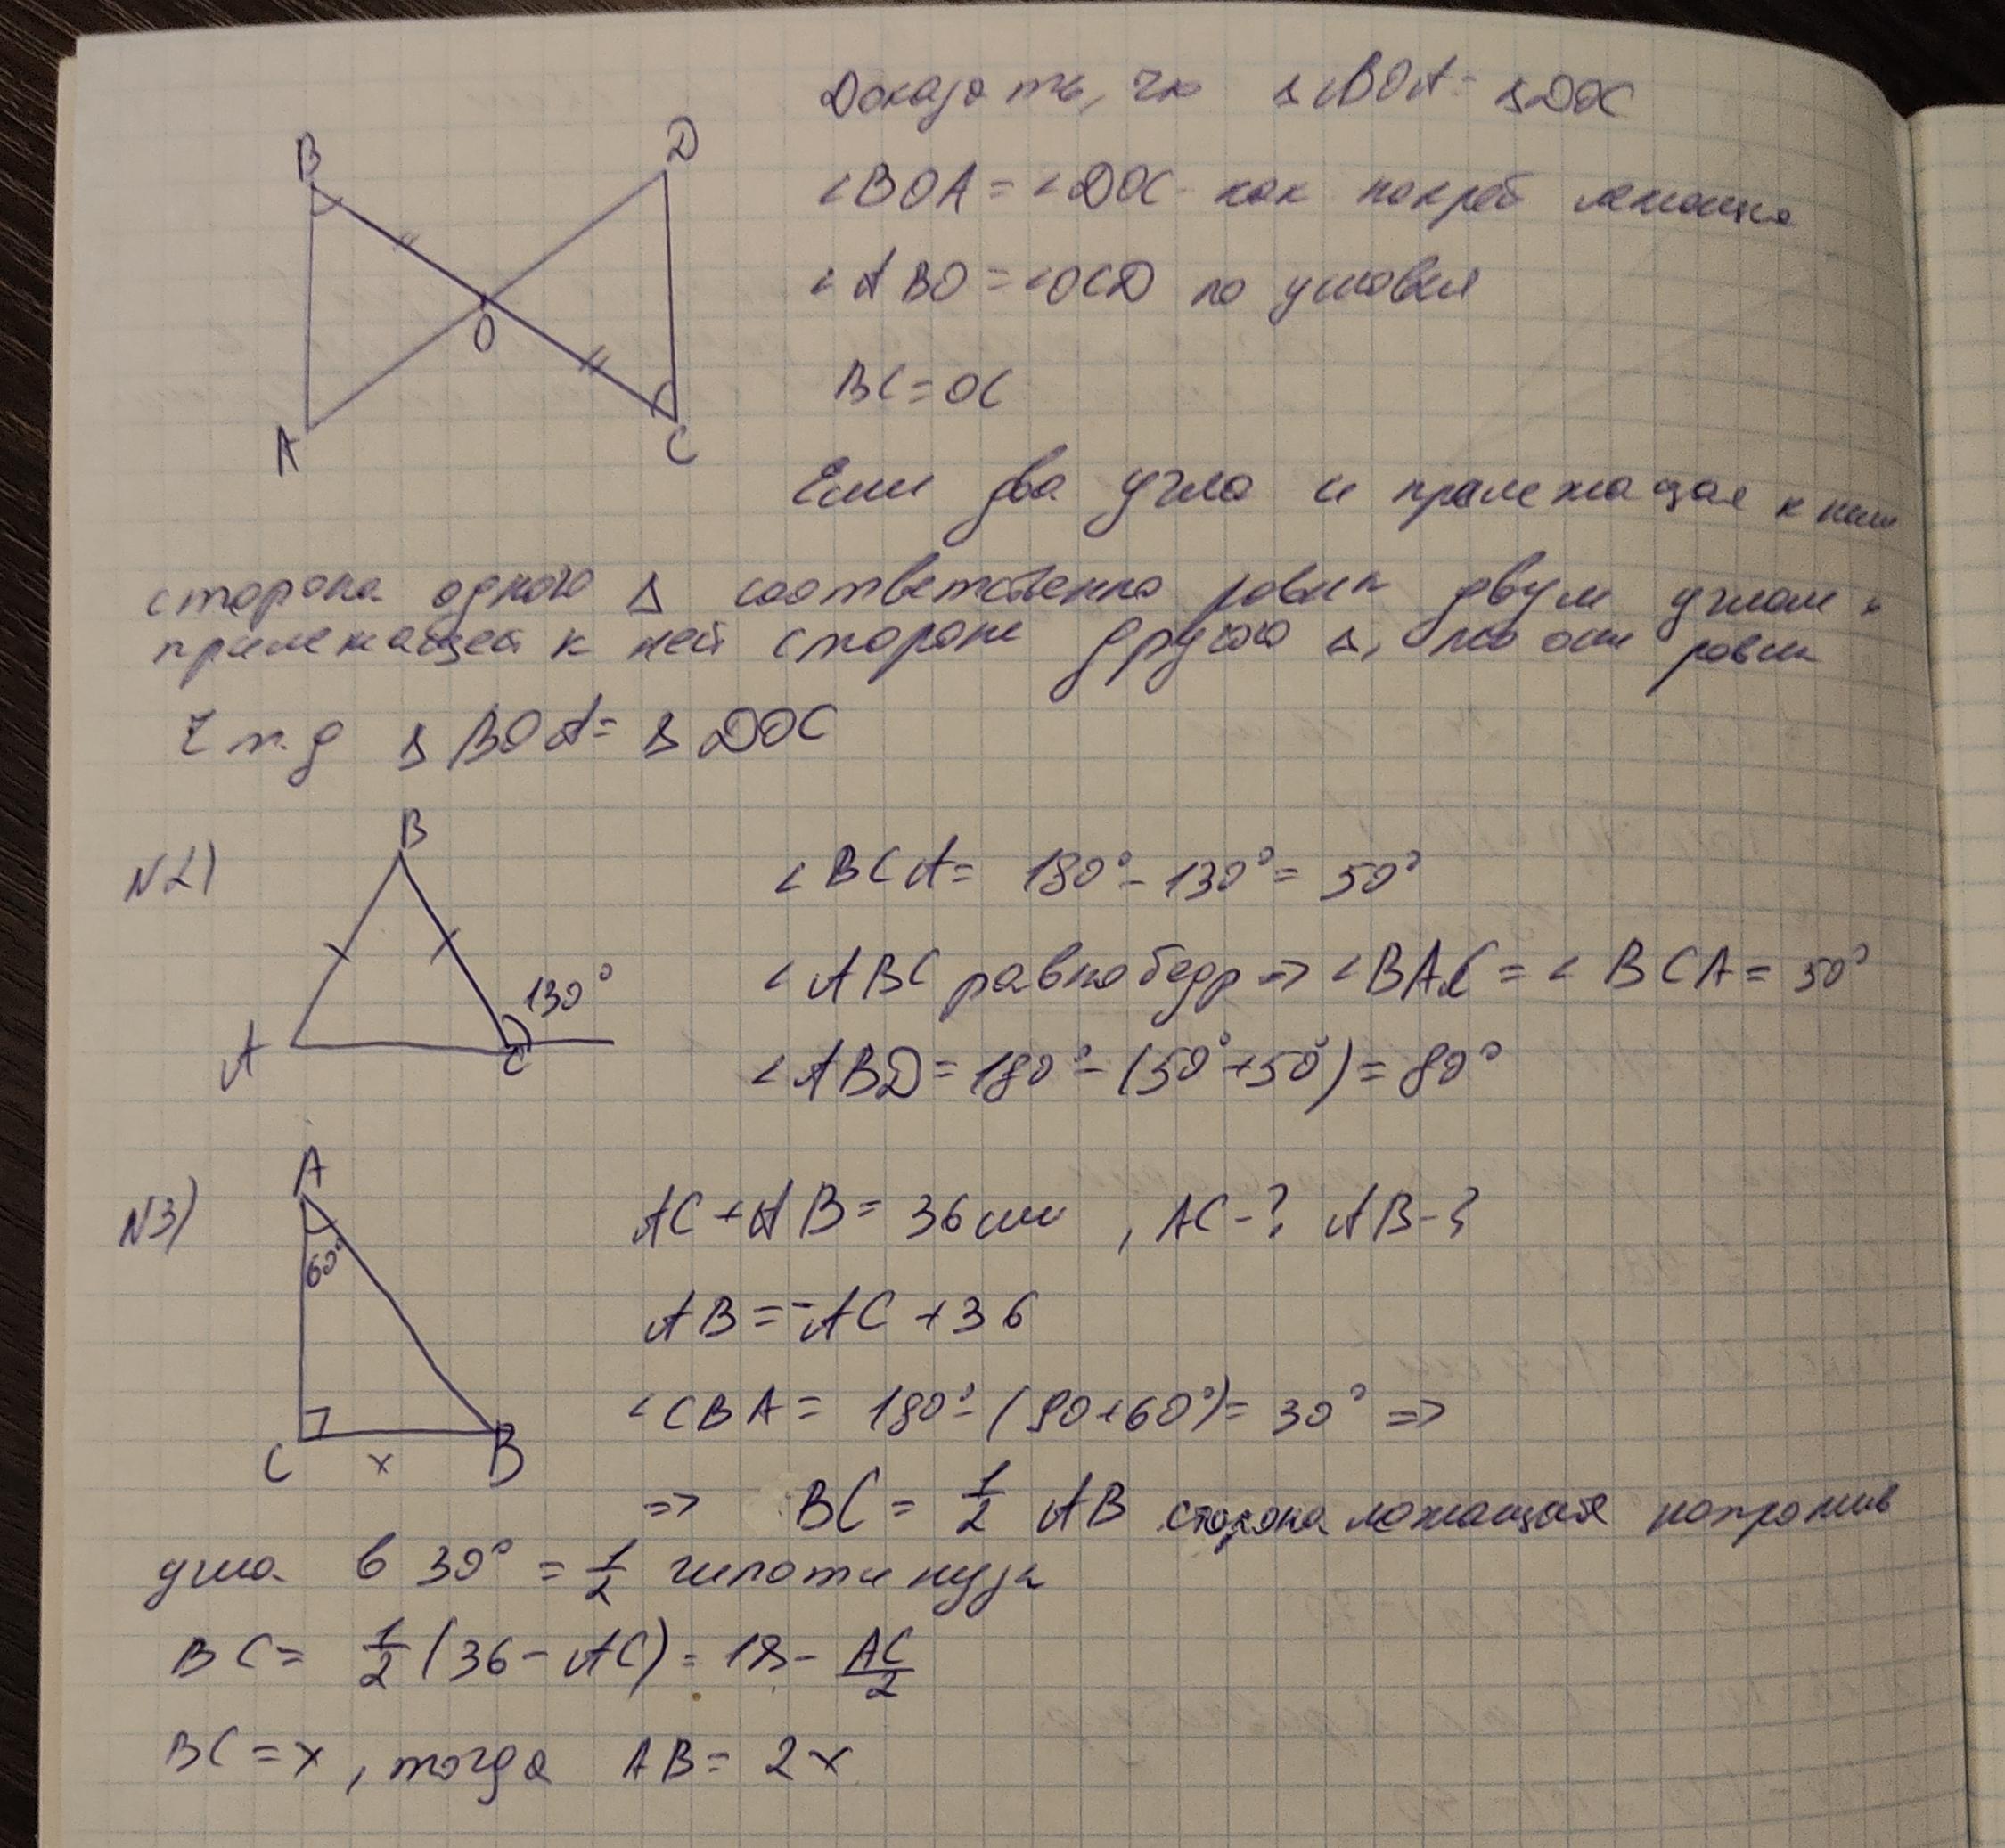 Доказать, что ΔBOA = ΔDOC
B
D
∠BOA = ∠DOC - как накрест лежащие
∠ABO = ∠OCD по условия
O
BC = OC
A
C
Если два угла и прилежащая к ним
сторона одного Δ соответственно равны двум углам и
прилежащей к ней стороне другого Δ, то они равны
Ч т. д ΔBOA = ΔDOC
N2)
B
∠BCA = 180° - 130° = 50°
∠ABC равнобедр => ∠BAC = ∠BCA = 50°
130°
A
C
∠ABD = 180° - (50° + 50°) = 80°
N3)
A
AC + AB = 36 см , AC - ? AB - ?
60°
AB = -AC + 36
∠CBA = 180° - (90 + 60°) = 30° =>
C
x
B
=> BC = 1/2 AB сторона лежащая напротив
угла в 30° = 1/2 гипотинузы
BC = 1/2 (36 - AC) = 18 - AC/2
BC = x , тогда AB = 2x